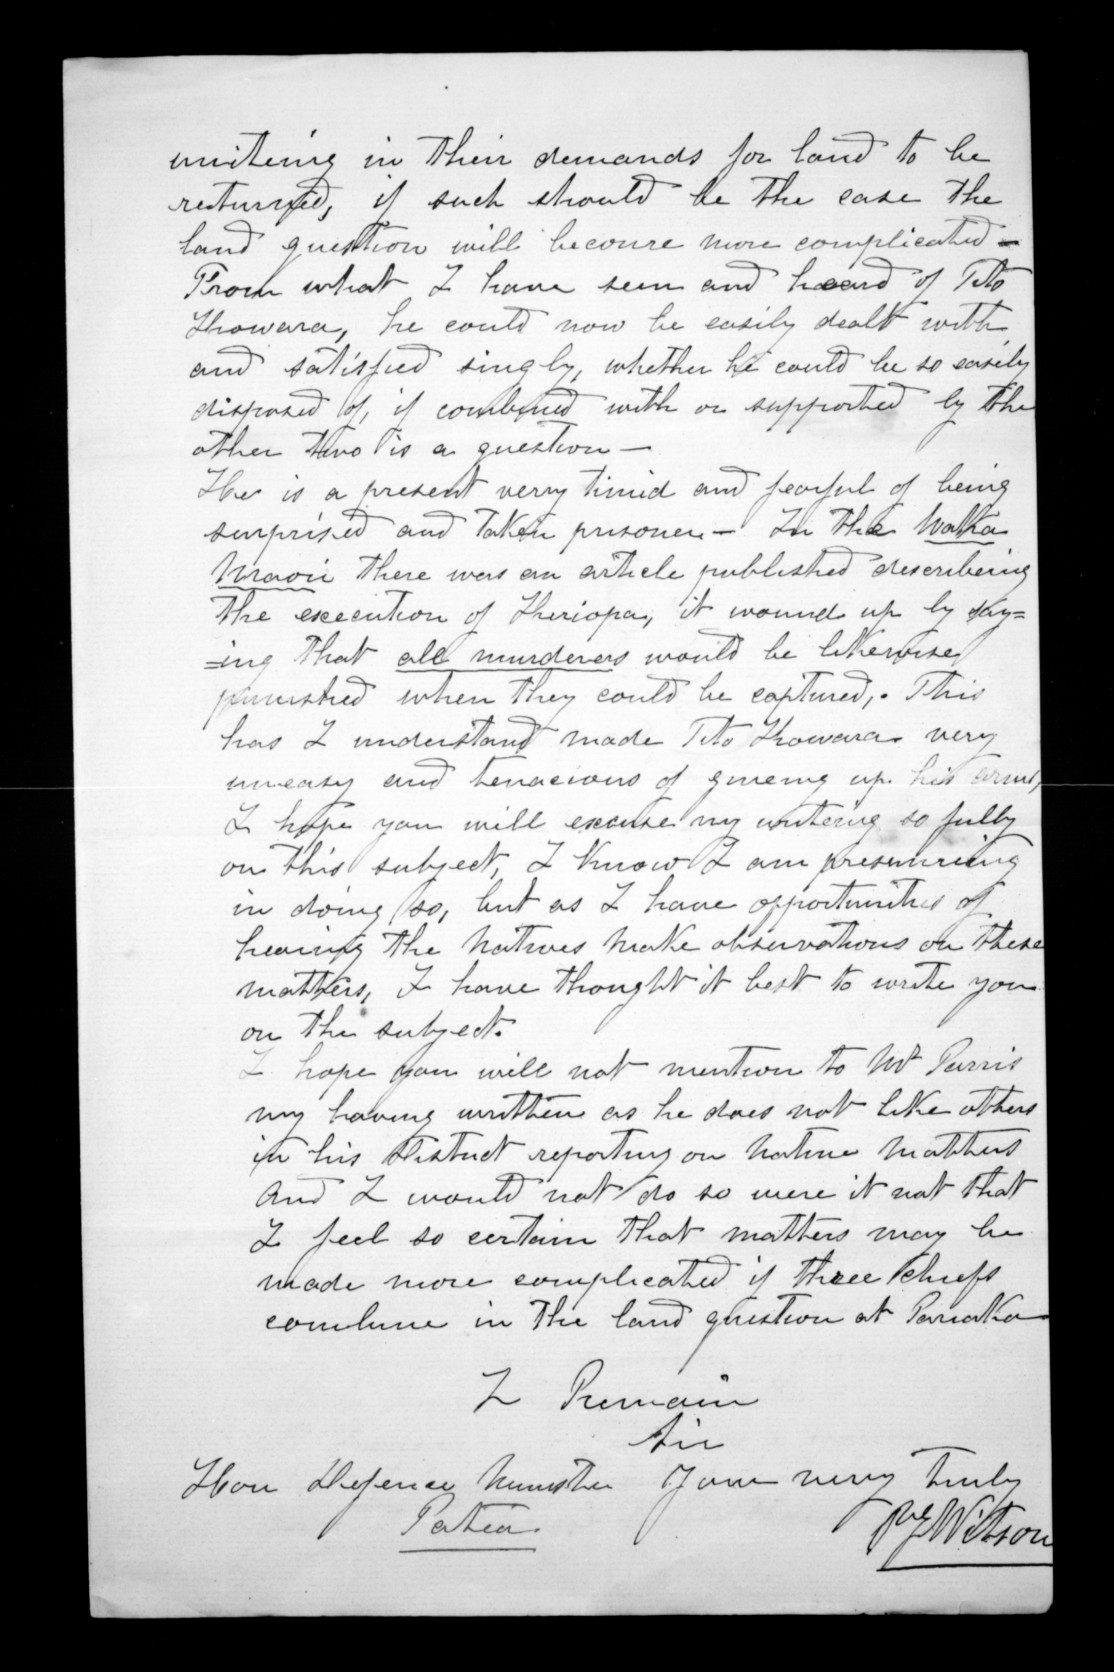 uniteing in their demands for land to be
returned, if such should be the case the
land question will become more complicated –
From what I have seen and heard of Tito
Howara, he could now be easily dealt with
and satisfied singly, whether he could be so easily
disposed of, if combined with or supported by the
other two is a question –
He is a present very timid and fearful of being
surprised and taken prisoner – In the Waka
Maori there was an article published describeing
the execution of Heriopa, it wound up by say=
=ing that all murderers would be likewise
punished when they could be captured,. This
has I understand made Tito Howara very
uneasy and tenacious of giveing up his arms,
I hope you will excuse my writeing so fully
on this subject, I know I am presumeing
in doing so, but as I have opportunities of
hearing the Natives make observations on these
matters, I have thought it best to write you
on the subject.
I hope you will not mention to Mr Parris
my having written as he does not like others
in his District reporting on Native Matters
And I would not do so were it not that
I feel so certain that matters may be
made more complicated if three chiefs
combine in the land question at Pariaka
I Remain
Sir
Hon Defence Minister Your very truly
Patea. Wilson